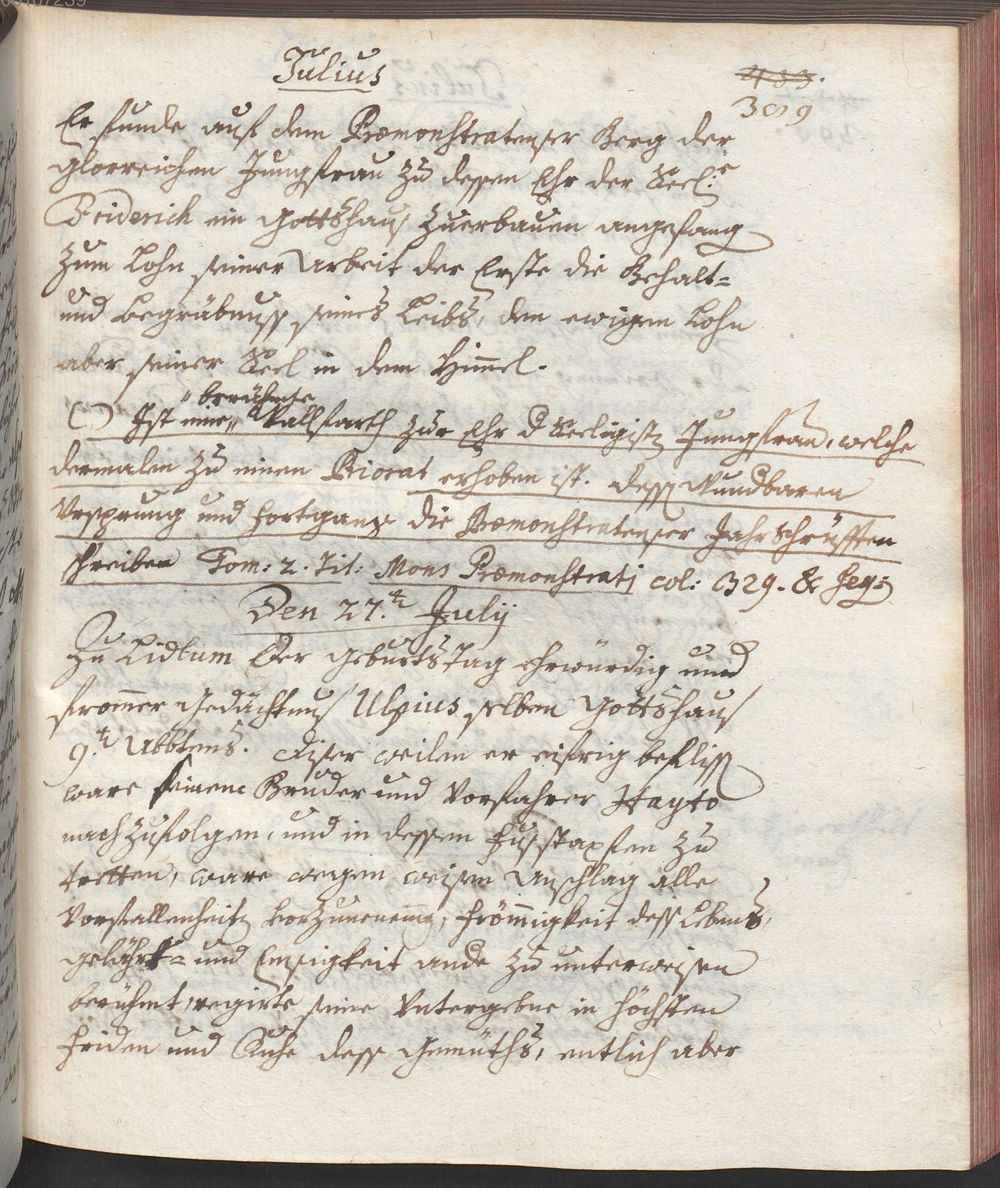 Julius
433.
309
Er funde auf dem Præmonstratenser Berg der
glorreichen Jungfrau zu dessen Ehr der Seel:e
Friderich ein Gottshaus zuerbauen angefang
zum Lohn seiner Arbeit der Erste die Behalt=
und begräbnuss seines Leibs, den ewigen Lohn
aber seiner Seel in dem Himel.
berühmte
( ) Ist eine Wallfarth zur Ehr d Seeligist Jungfrau, welche
dermalen zu einen Priorat erhoben ist. dess Wundbaren
Ursprung und fortgang die Præmonstratenser Jahrschrüfften
schreiben Tom: 2. Tit: Mons Præmonstrati col: 329. & seq:
Den 27.te Julij
Zu Lidlum Der geburtsTag ehrwürdig und
fromer gedächtnus Ulpius selben Gottshaus
9.te Abbtens. diser weilen er eifrig befliss
ware seinem Bruder und Vorfahrer Hayto
nachzufolgen, und in dessen Fusstapfen zu
tretten, ware wegen weisen Anschlag alle
Vorfallenheit vorzunemen, Frömmigkeit dess Lebens,
gelührt= und Emsigkeit ande zu unterweisen
berühmt, regirte seine Untergebne in höchsten
Friden und Ruhe dess gemüths, entlich aber